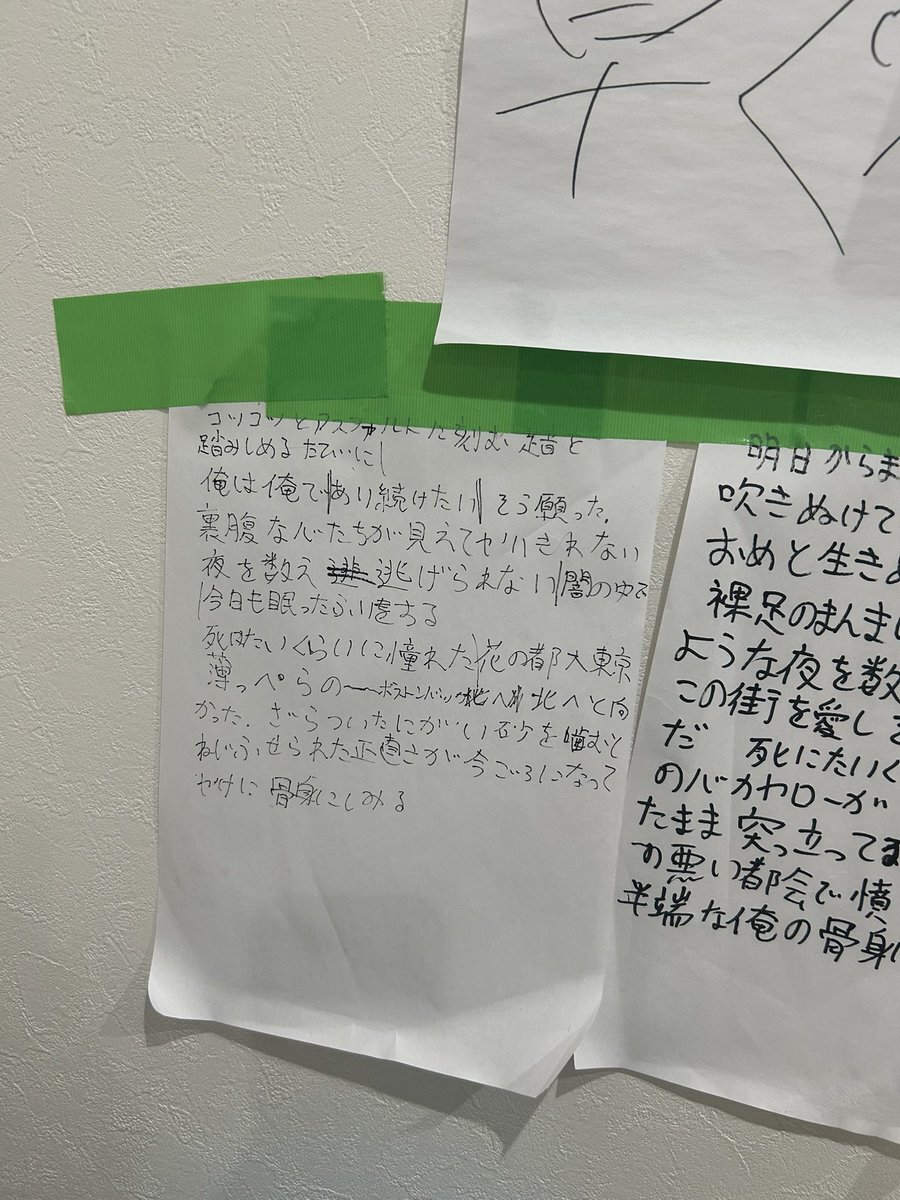 コツコツとアスファルトに刻む足音を
踏みしめるたびに
俺は俺であり続けたい そう願った.
裏腹な心たちが見えてやりきれない
夜を数え 逃げられない闇の中で
今日も眠ったふりをする
死にたいくらいに憧れた花の都大東京
薄っぺらの〜ボストンバッグ 北へ北へと向
かった. ざらついたにがい砂を噛むと
ねじふせられた正直さが今ごろになって
やけに 骨身にしみる
明日からま
吹きぬけて
おめと生き
裸足のまんま
ような夜を数
この街を愛し
だ 死にたいく
のバカヤローが
たまま突っ立って
の悪い都会で憤
半端な俺の骨身
早